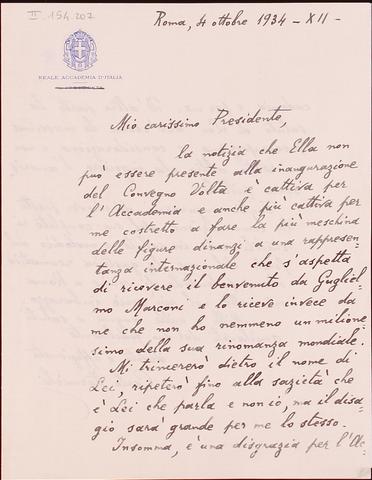 II. 154.207
Roma, 4 ottobre 1934 - XII -
REALE ACCADEMIA D'ITALIA
Mio carissimo Presidente,
la notizia che Ella non
può essere presente alla inaugurazione
del Convegno Volta è cattiva per
l'Accademia e anche più cattiva per
me costretto a fare la più meschina
delle figure dinanzi a una rappresen-
tanza internazionale che s'aspetta
di ricevere il benvenuto da Gugliel-
mo Marconi e lo riceve invece da
me che non ho nemmeno un milione-
simo della sua rinomanza mondiale.
Mi trincererò dietro il nome di
Lei, ripeterò fino alla sazietà che
è Lei che parla e non io, ma il disa-
gio sarà grande per me lo stesso.
Insomma, è una disgrazia per l'Ac-